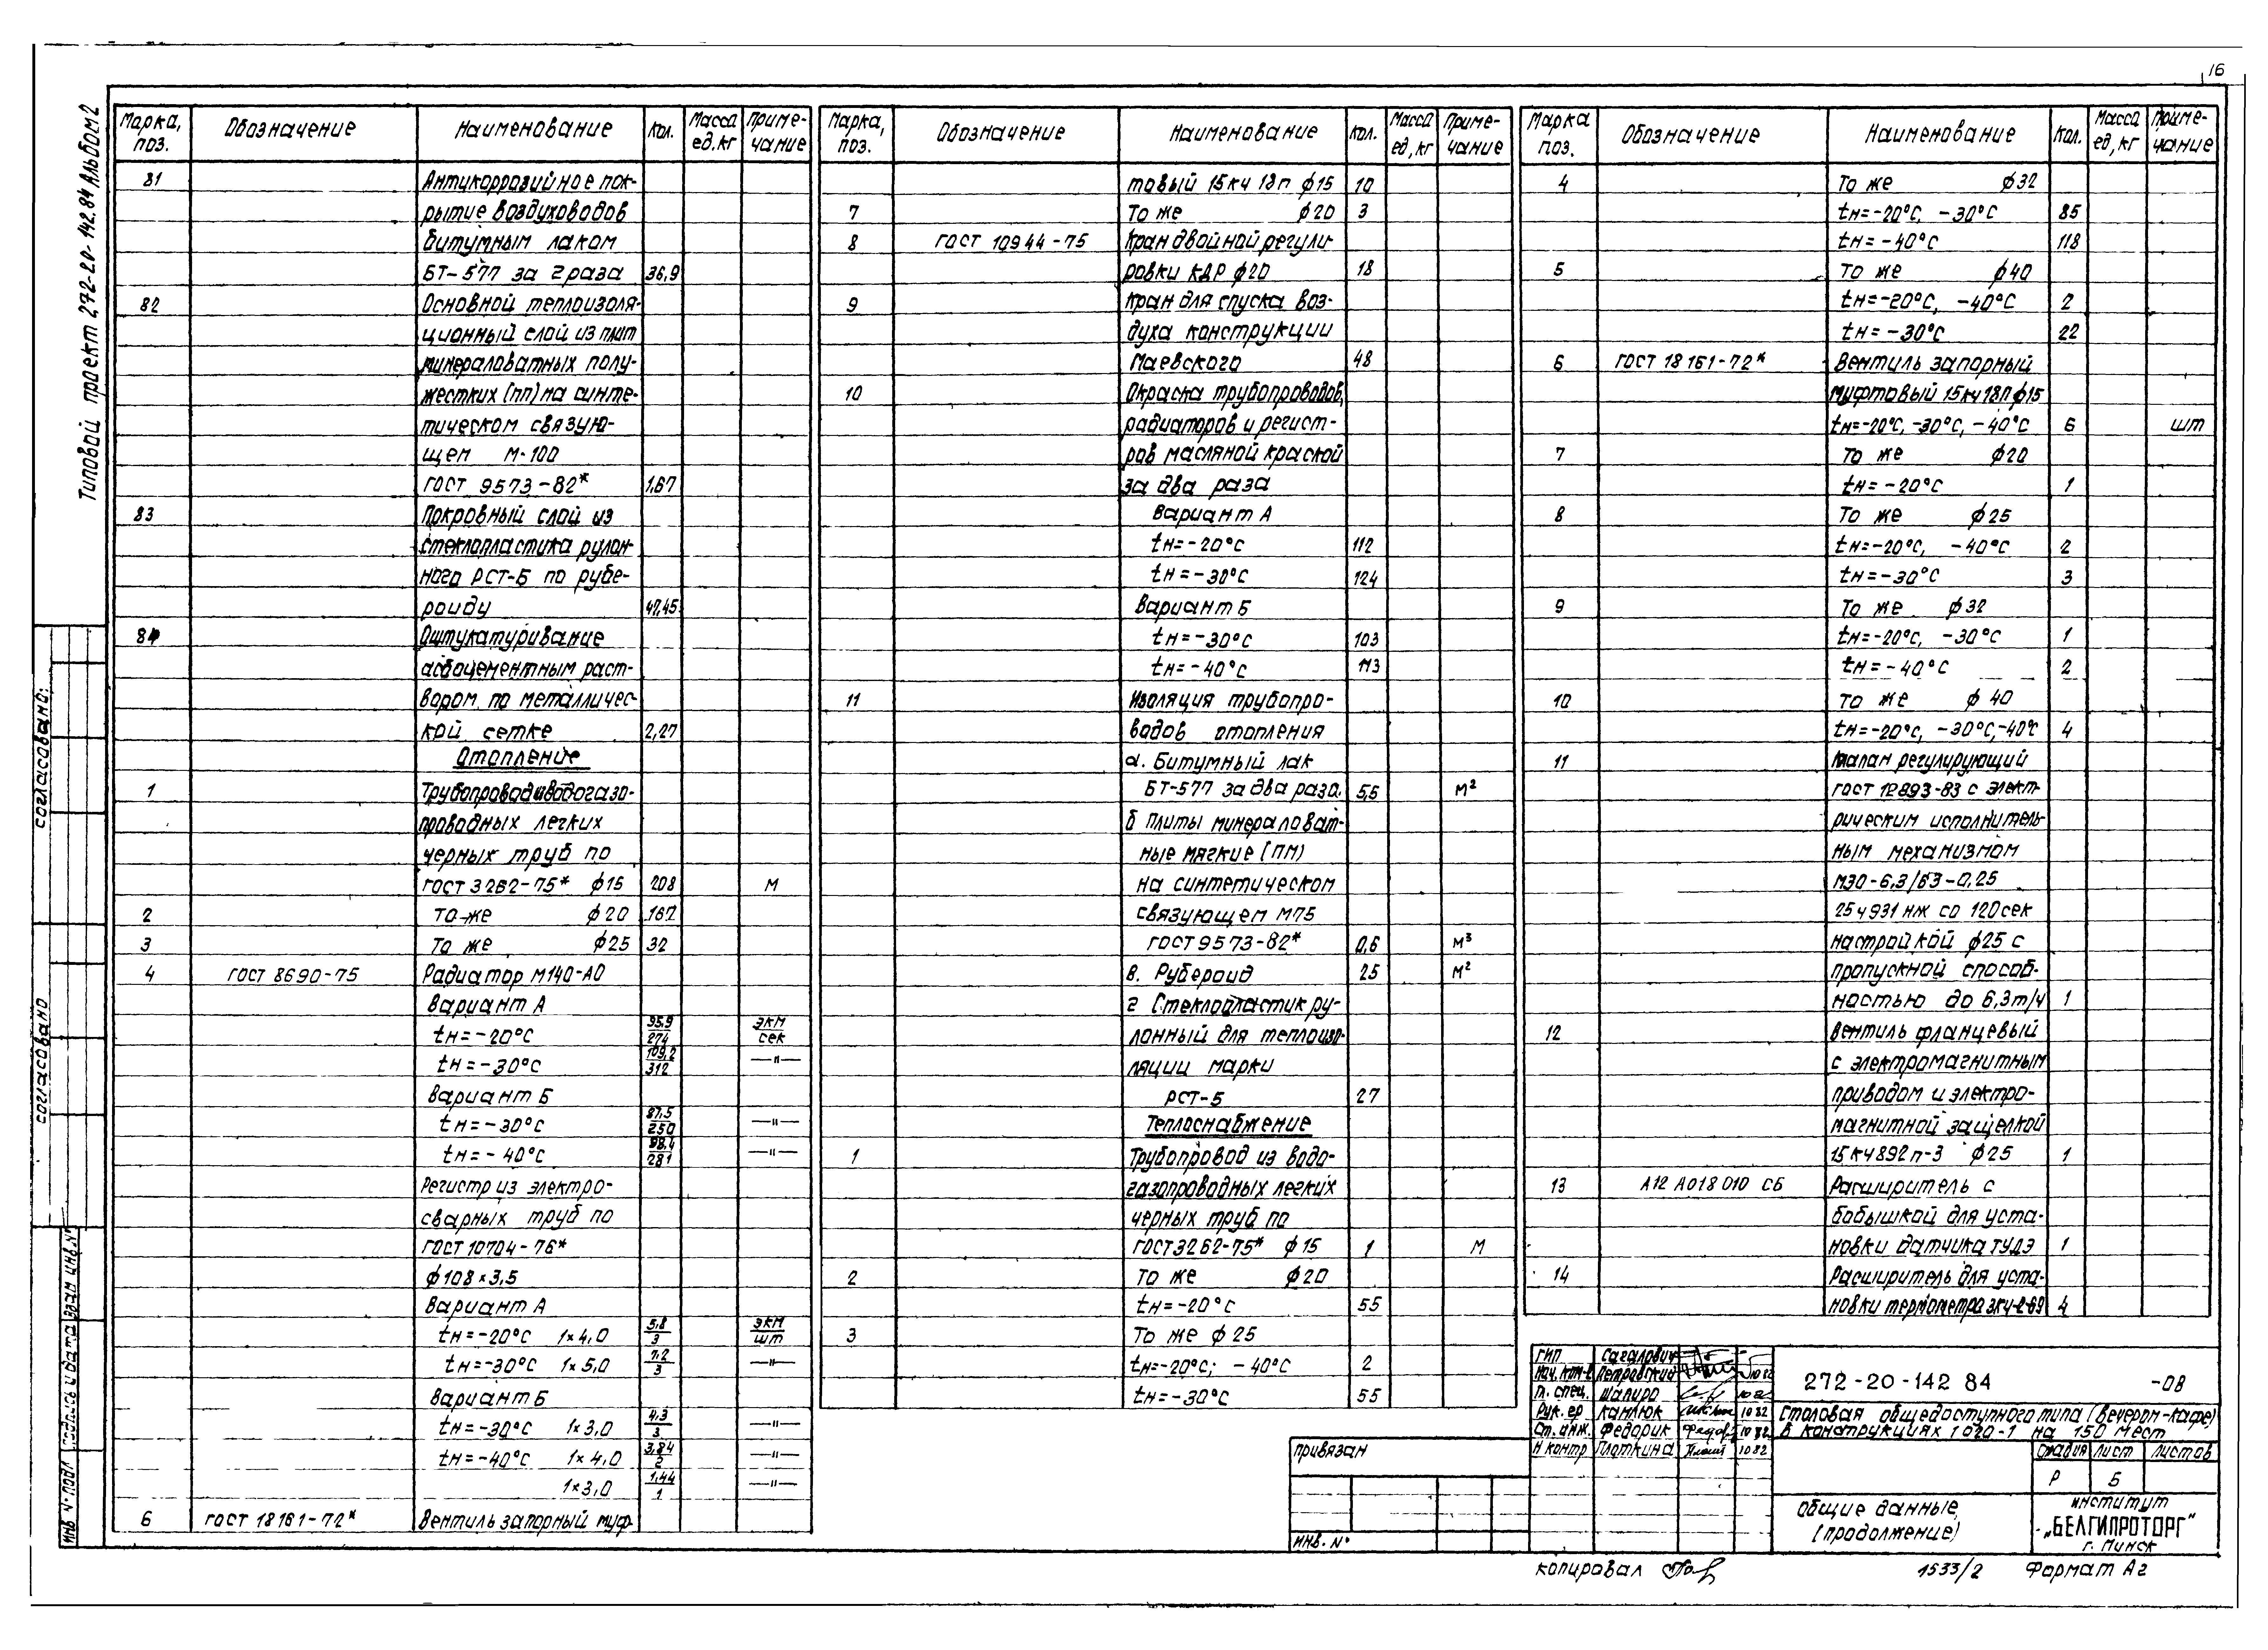 16
Типовой проект 272-20-142.84 Альбом 2
Марка, поз. Обозначение Наименование Кол. Масса ед.кг Приме-чание
81 Антикоррозийное пок-
рытие воздуховодов
битумным лаком
БТ-577 за 2 раза 36,9
82 Основной теплоизоля-
ционный слой из плит
минераловатных полу-
жестких (ПП) на синте-
тическом связую-
щем М-100
ГОСТ 9573-82* 1,67
83 Покровный слой из
стеклопластика рулон-
ного РСТ-Б по рубе-
роиду 47,45
84 Оштукатуривание
асбоцементным раст-
вором по металличес-
кой сетке 2,27
Отопление
1 Трубопровод из водогазо-
проводных легких
черных труб по
ГОСТ 3262-75* ϕ15 208 м
2 То же ϕ20 167
3 То же ϕ25 32
4 ГОСТ 8690-75 Радиатор М140-АО
Вариант А
tн=-20°С 95,9/274 экм/сек
tн=-30°С 109,2/312 —"—
Вариант Б
tн=-30°С 87,5/250 —"—
tн=-40°С 98,4/281 —"—
Регистр из электро-
сварных труб по
ГОСТ 10704-76*
ϕ108×3,5
Вариант А
tн=-20°С 1×4,0 5,8/3 экм/шт
tн=-30°С 1×5,0 7,2/3 —"—
Вариант Б
tн=-30°С 1×3,0 4,3/3 —"—
tн=-40°С 1×4,0 3,84/2 —"—
1×3,0 1,44/1 —"—
6 ГОСТ 18161-72* Вентиль запорный муф-
Марка, поз. Обозначение Наименование Кол. Масса ед,кг Приме-чание
товый 15кч 18п ϕ15 10
7 То же ϕ20 3
8 ГОСТ 10944-75 Кран двойной регули-
ровки КДР ϕ20 18
9 Кран для спуска воз-
духа конструкции
Маевского 48
10 Окраска трубопроводов,
радиаторов и регист-
ров масляной краской
за два раза
Вариант А
tн=-20°С 112
tн=-30°С 124
Вариант Б
tн=-30°С 103
tн=-40°С 113
11 Изоляция трубопро-
водов отопления
а. Битумный лак
БТ-577 за два раза. 5,5 м²
б Плиты минераловат-
ные мягкие (ПМ)
на синтетическом
связующем М75
ГОСТ 9573-82* 0,6 м³
в. Рубероид 25 м²
г Стеклопластик ру-
лонный для теплоизо-
ляции марки
РСТ-Б 27
Теплоснабжение
1 Трубопровод из водо-
газопроводных легких
черных труб по
ГОСТ 3262-75* ϕ15 1 м
2 То же ϕ20
tн=-20°С 55
3 То же ϕ25
tн=-20°С; -40°С 2
tн=-30°С 55
Марка поз. Обозначение Наименование Кол. Масса ед,кг Приме-чание
4 То же ϕ32
tн=-20°С, -30°С 85
tн=-40°С 118
5 То же ϕ40
tн=-20°С, -40°С 2
tн=-30°С 22
6 ГОСТ 18161-72* Вентиль запорный
муфтовый 15кч18п ϕ15
tн=-20°С, -30°С, -40°С 6 шт
7 То же ϕ20
tн=-20°С 1
8 То же ϕ25
tн=-20°С, -40°С 2
tн=-30°С 3
9 То же ϕ32
tн=-20°С, -30°С 1
tн=-40°С 2
10 То же ϕ40
tн=-20°С, -30°С,-40°С 4
11 Клапан регулирующий
ГОСТ 12893-83 с элект-
рическим исполнитель-
ным механизмом
МЭО-6,3/63-0,25
25ч931нж со 120сек
настройкой ϕ25 с
пропускной способ-
ностью до 6,3т/ч 1
12 Вентиль фланцевый
с электромагнитным
приводом и электро-
магнитной защелкой
15кч892п-3 ϕ25 1
13 А12 А018 010 СБ Расширитель с
бобышкой для уста-
новки датчика ТУДЭ 1
14 Расширитель для уста-
новки термометра 3КЧ-2-69 4
согласовано:
согласовано
Инв.№ подл Подпись и дата Взам инв.№
Привязан
Инв. №
ГИП Сагалович
Нач. ком-в Петровский 10 82
Гл. спец. Шапиро 10 82
Рук. гр Камлюк 10 82
Ст. инж. Федорик 10 82
Н контр Плоткина 10 82
272-20-142 84 -08
Столовая общедоступного типа (вечером-кафе)
в конструкциях 1 020-1 на 150 мест
Стадия Лист Листов
Р 5
Общие данные,
(продолжение)
институт
„БЕЛГИПРОТОРГ“
г. Минск
Копировал
1533/2
Формат А2